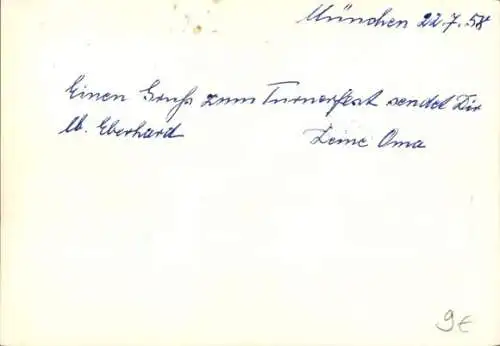 München 22.7.58
Einen Gruß zum Turnerfest sendet Dir
lb. Eberhard Deine Oma
9€